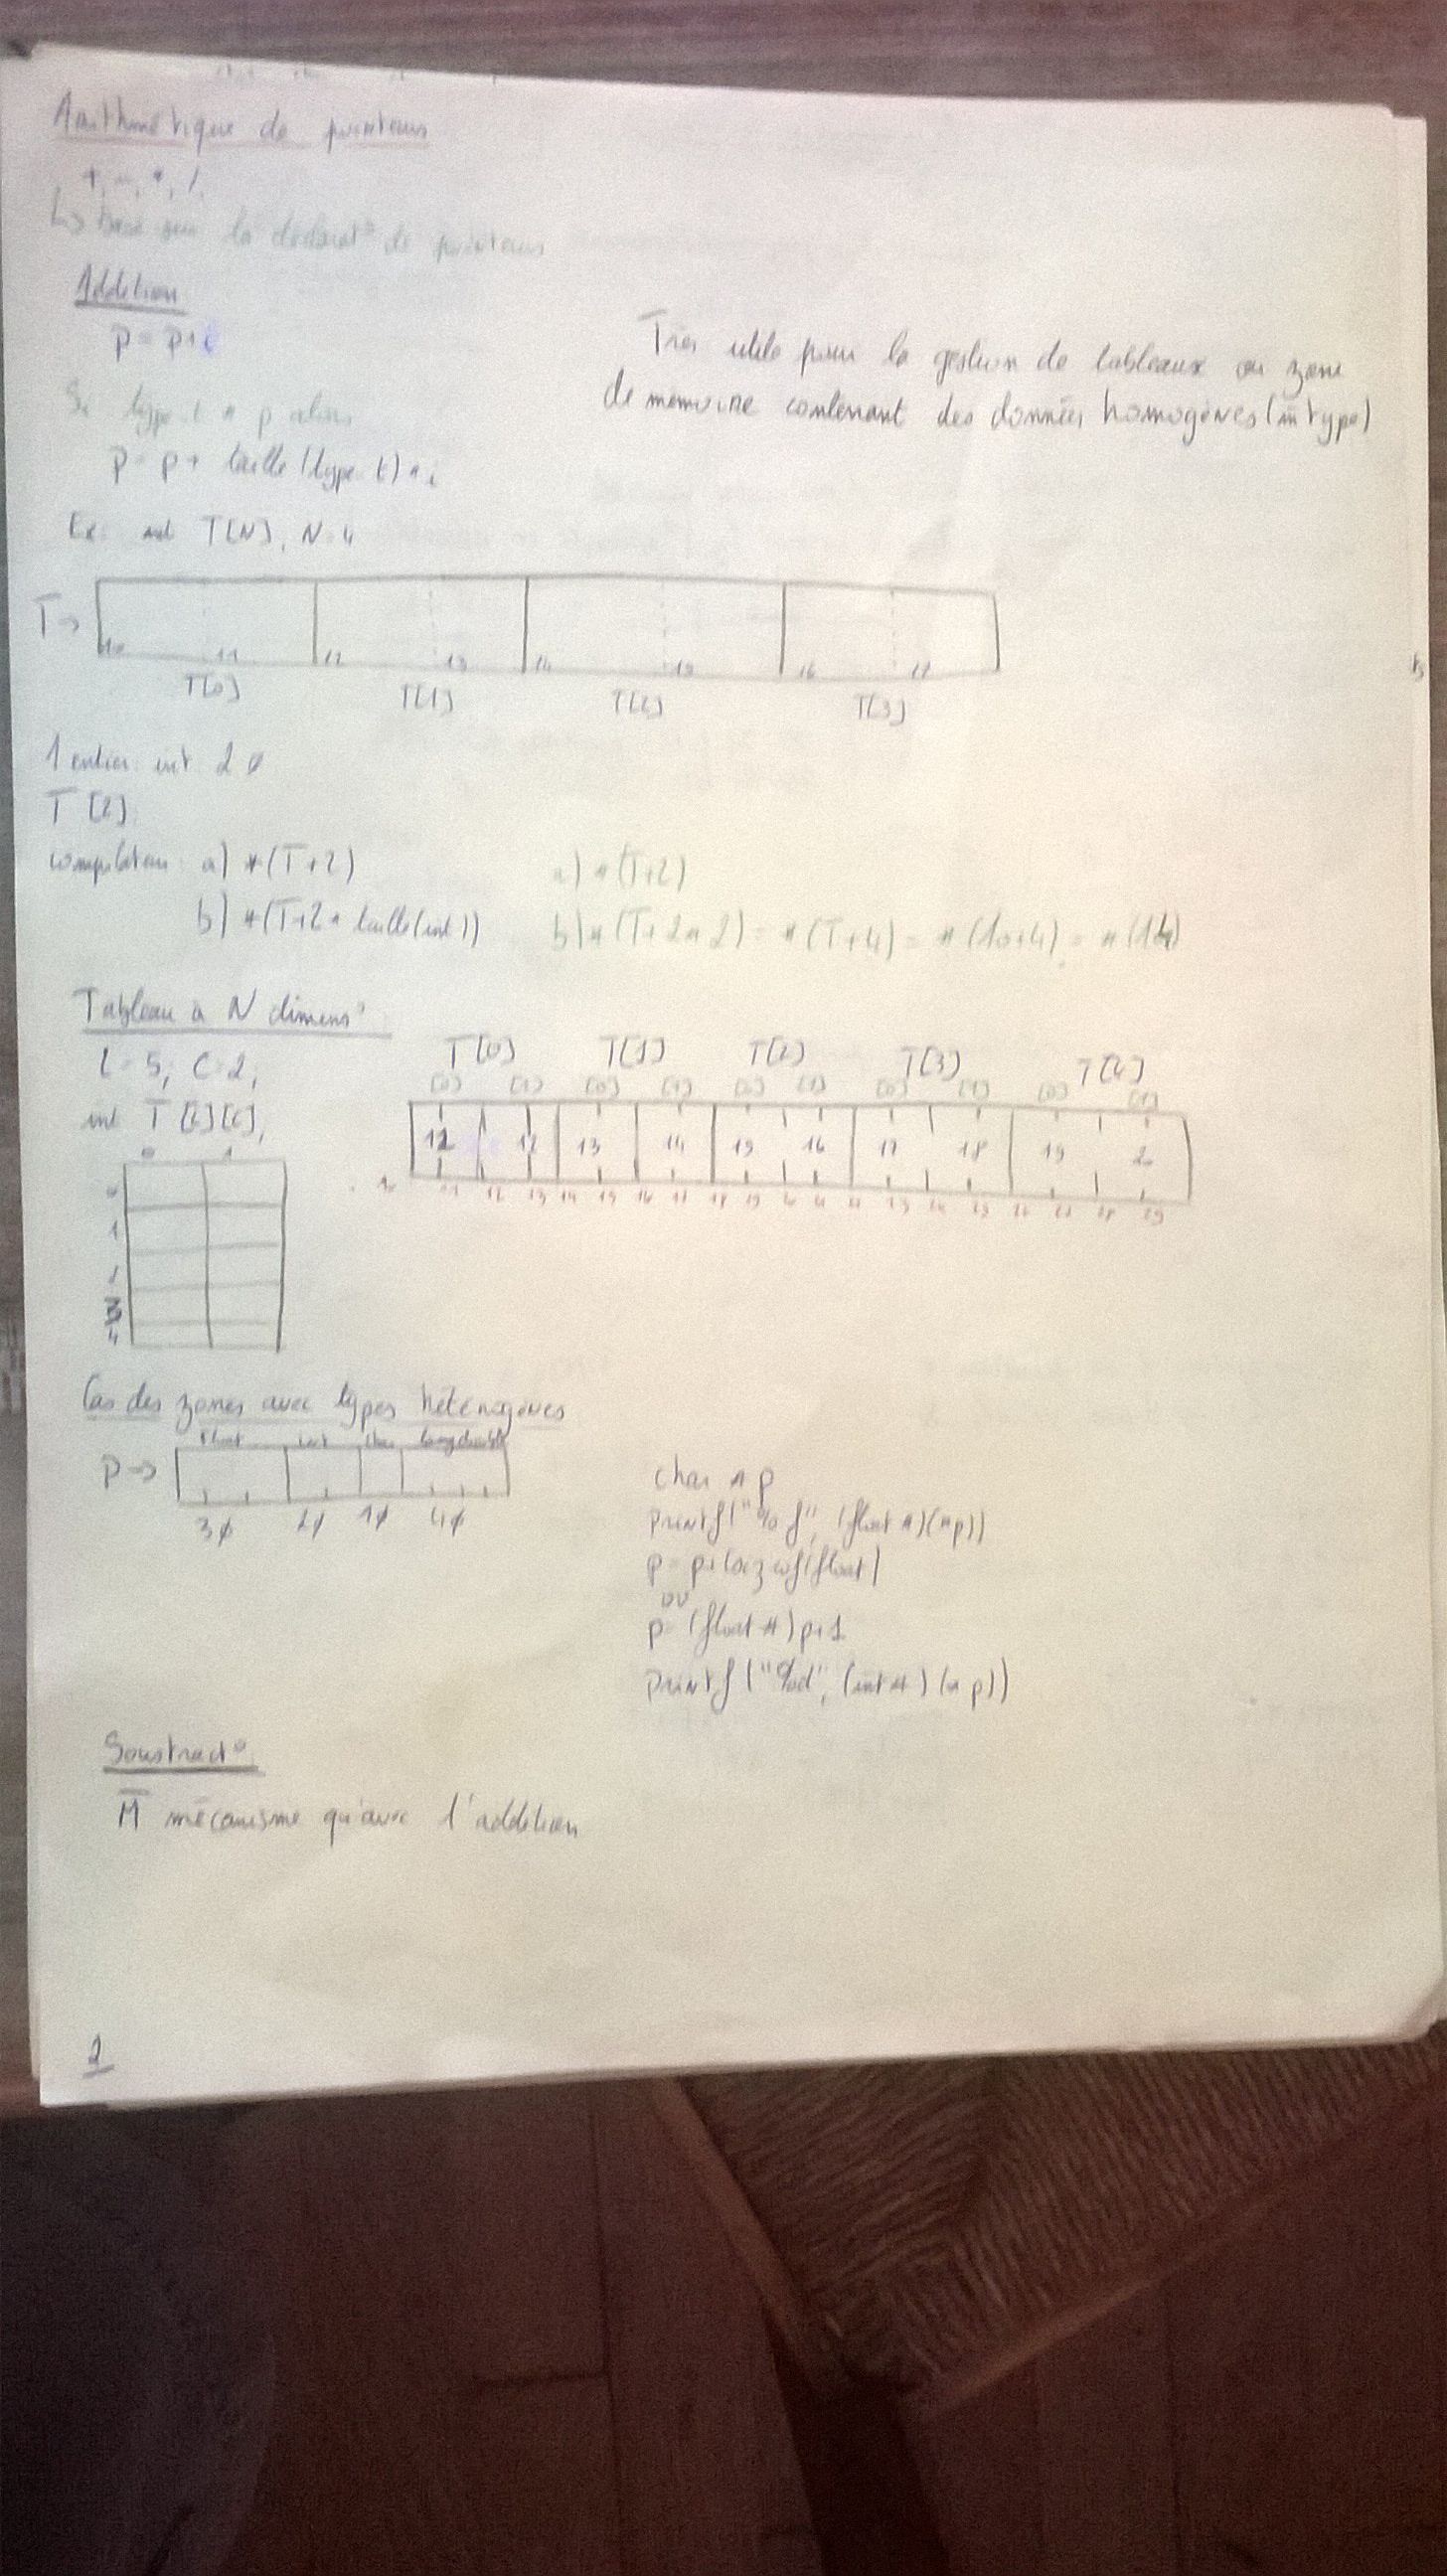 Arithmétique de pointeurs
+, -, *, /
↳ basé sur la déclarat° de pointeurs
Addition
p = p+i
Si type t * p alors
p = p + taille (type t) * i
Très utile pour la gestion de tableaux ou zone
de mémoire contenant des données homogènes (m̄ type)
Ex: int T[N], N=4
T →
10 11 12 13 14 15 16 17
T[0] T[1] T[2] T[3]
1 entier int 2 ø
T[2]
compilateur a) *(T+2)
b) *(T+2* taille(int))
a) *(T+2)
b) *(T+2*2) = *(T+4) = *(10+4) = *(14)
Tableau à N dimens°
L=5; C=2;
int T[L][C];
0 1
0
1
2
3
4
T[0] T[1] T[2] T[3] T[4]
[0] [1] [0] [1] [0] [1] [0] [1] [0] [1]
12 13 14 15 16 17 18 19
10 11 12 13 14 15 16 17 18 19
Cas des zones avec types hétérogènes
float int char long double
p →
3ø 2ø 1ø 4ø
char * p
printf("%f", (float *)(*p))
p = p+(sizeof(float)
ou
p = (float *) p+1
printf("%d", (int *)(*p))
Soustract°
M̄ mécanisme qu'avec l'addition
2